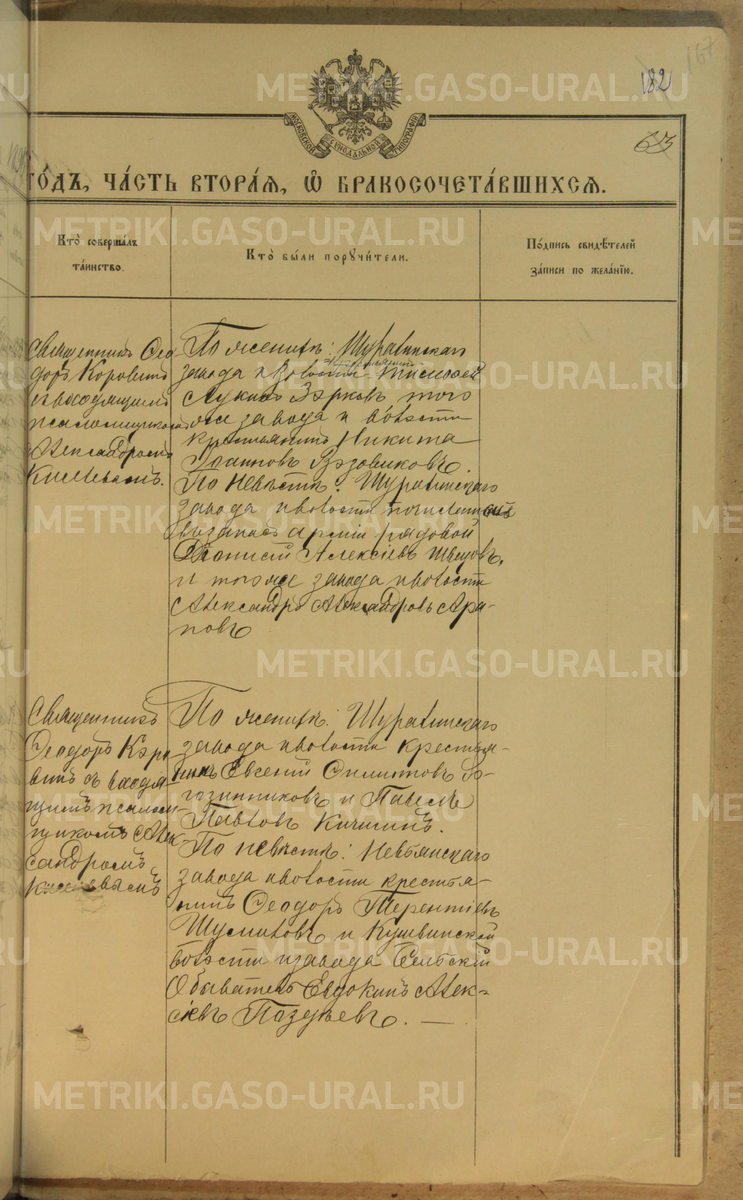 METRIKI.GASO-URAL.RU
167
182
63
МОСКОВСКОЙ СѴНОДАЛЬНОЙ ТИПОГРАФІИ
ГО́ДЪ, ЧА́СТЬ ВТОРА́Я, Ѽ БРАКОСОЧЕТА́ВШИХСЯ.
Кто̀ соверша́лъ
та́инство.
Кто̀ бы́ли порꙋчи́тели.
По́дпись свидѣ́телей
за́писи по жела́нїю.
Священникъ Ѳео
доръ Коровинъ
псаломщикомъ
Александромъ
Киселевымъ.
По женихѣ: Шуралинскаго
завода и волости
Лукинъ того
же завода и волости
крестьянинъ Никита
Іоанновъ Вязовиковъ.
По невѣстѣ: Шуралинскаго
завода и волости
запаса арміи рядовой
Діонисій Алексіевъ Швецовъ,
и того же завода и волости
Александръ Александровъ Ара-
повъ
Священникъ
Ѳеодоръ Коро
винъ съ
псалом-
щикомъ Алек
сандромъ
Киселевымъ
По женихѣ: Шуралинскаго
завода и волости крестья-
нинъ Евгеній Ро-
гозинниковъ и Павелъ
Павловъ Кичигинъ.
По невѣстѣ: Невьянскаго
завода и волости крестья-
нинъ Ѳеодоръ Терентіевъ
Шумиловъ и Кушвинской
волости и завода Сельскій
Обыватель Евдокимъ Алек-
сіевъ Поздѣевъ. —